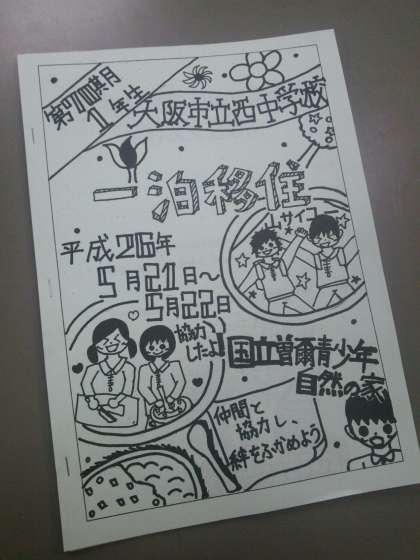 1年生
大阪市立西中学校
一泊移住
山サイコー
平成26年
5月21日〜
5月22日
協力
したよ!
国立曽爾青少年
自然の家
仲間と
協力し、
絆をふかめよう